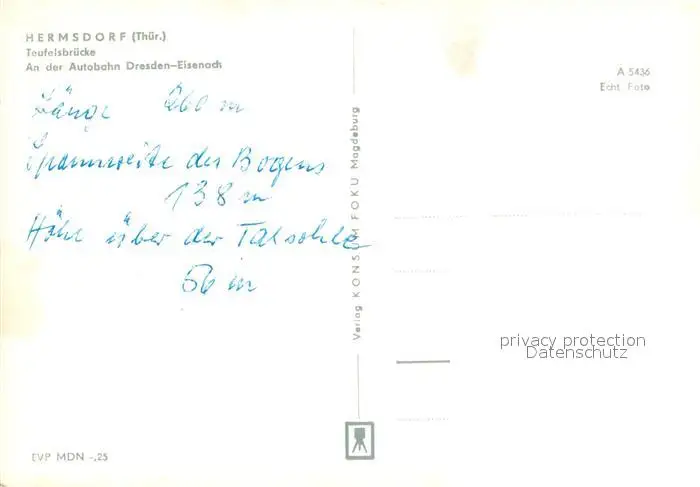 HERMSDORF (Thür.)
Teufelsbrücke
An der Autobahn Dresden–Eisenach
Länge 260 m
Spannweite des Bogens
138 m
Höhe über der Talsohle
56 m
EVP MDN -,25
Verlag KONSUM FOKU Magdeburg
A 5436
Echt Foto
privacy protection
Datenschutz